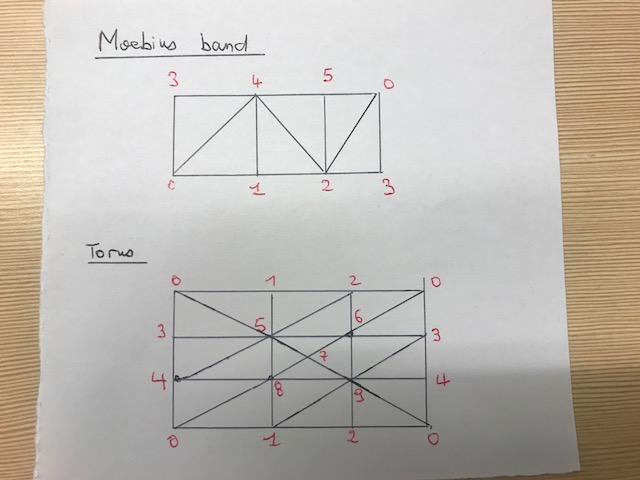 Moebius band
3 4 5 0
0 1 2 3
Torus
0 1 2 0
3 5 6 3
7
4 8 9 4
0 1 2 0